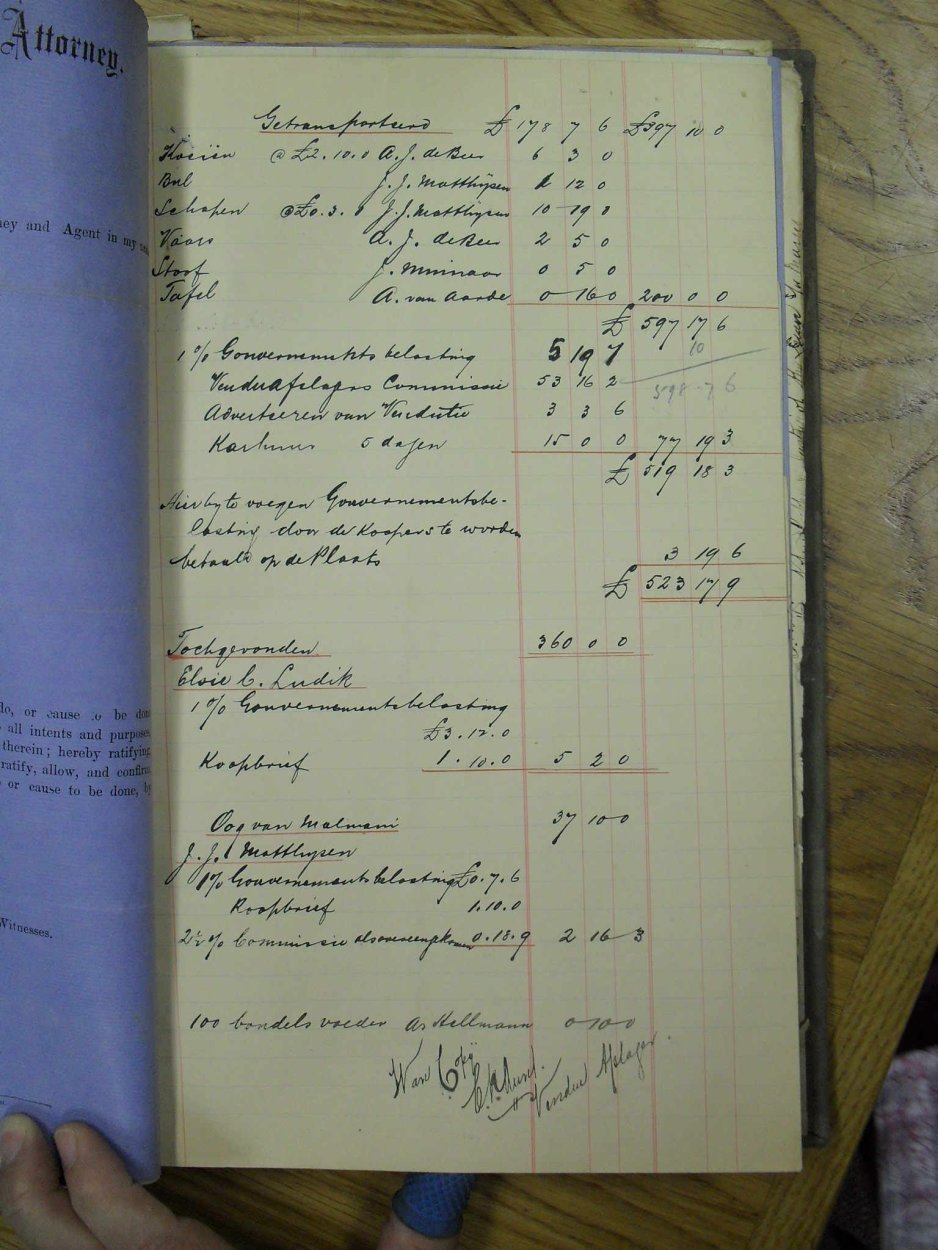 Attorney.
ney and Agent in my
do, or cause to be done
all intents and purposes,
therein; hereby ratifying
ratify, allow, and confirm
or cause to be done, by
Witnesses.
Getransporteerd £ 178 7 6 £397 10 0
Koeien @ £2.10.0 A. J. de Beer 6 3 0
Bul J. J. Matthysen 12 0
Schapen @ £0.3.0 J. J. Matthysen 10 19 0
Vaars A. J. de Beer 2 5 0
Stoof J. Minnaar 0 5 0
Tafel A. van Aarde 0 16 0 200 0 0
£ 597 17 6
10
1 % Gouvernements belasting 5 19 7
Vendu Afslagers Commissie 53 16 2 598 7 6
Adverteeren van Venditie 3 3 6
Karhuur 5 dagen 15 0 0 77 19 3
£ 519 18 3
Hierby te voegen Gouvernementsbe-
lasting door de Koopers te worden
betaald op de Plaats 3 19 6
£ 523 17 9
Tochgevonden 360 0 0
Elsie C. Ludik
1 % Gouvernementsbelasting
£3.12.0
Koopbrief 1.10.0 5 2 0
Oog van Malmani 37 10 0
J. J. Matthysen
1% Gouvernementsbelasting £0.7.6
Koopbrief 1.10.0
2½ % Commissie als overeengekomen 0.18.9 2 16 3
100 bondels voeder As Hellmann 0 10 0
Ware Copy
Vendu Afslager.